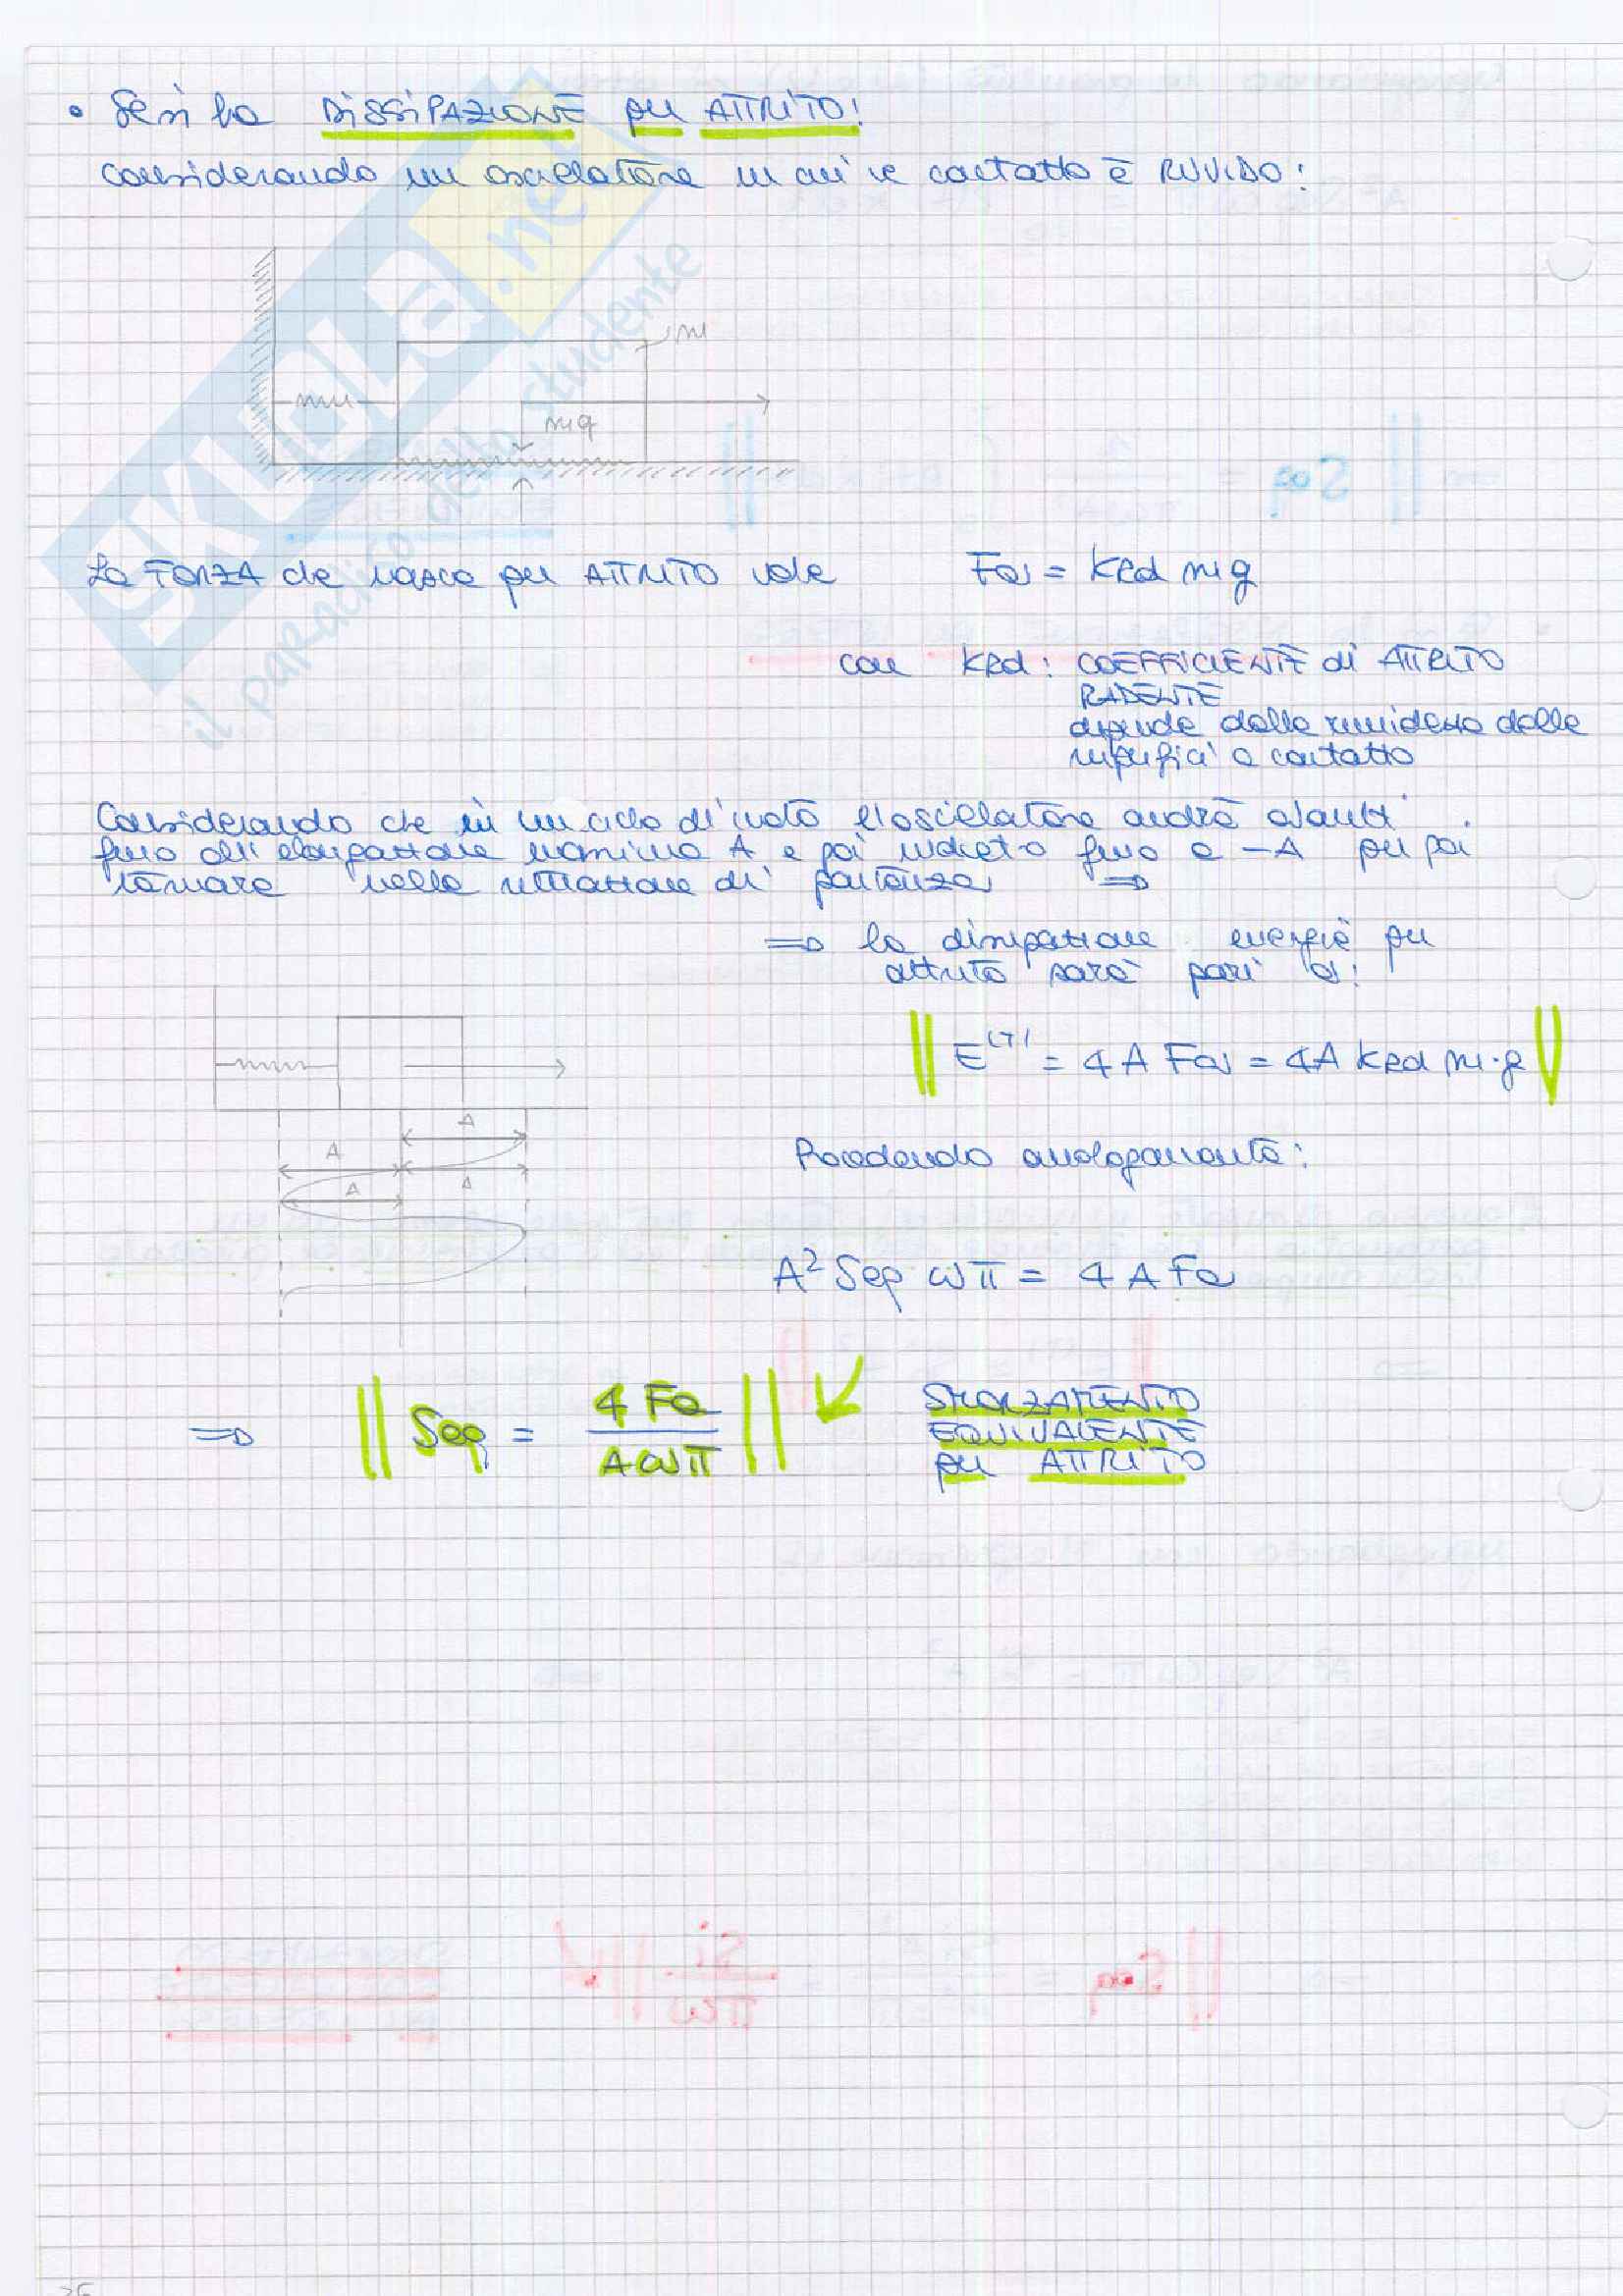 • Se si ha DISSIPAZIONE per ATTRITO!
considerando un oscillatore in cui il contatto è RUVIDO:
m
mg
La FORZA che nasce per ATTRITO vale Fa = Krd mg
con Krd: COEFFICIENTE di ATTRITO
RADENTE
dipende dalla ruvidezza delle
superfici a contatto
Considerando che in un ciclo di moto l'oscillatore andrà avanti
fino all'elongazione massima A e poi indietro fino a -A per poi
tornare nella situazione di partenza ⇒
⇒ la dissipazione energia per
attrito sarà pari a:
E(T) = 4 A Fa = 4A Krd m·g
A
A
A
A
Procedendo analogamente:
A² Seq ω π = 4 A Fa
⇒ Seq = 4 Fa / A ω π
SMORZAMENTO
EQUIVALENTE
per ATTRITO
SKUOLA.net
il paradiso dello studente